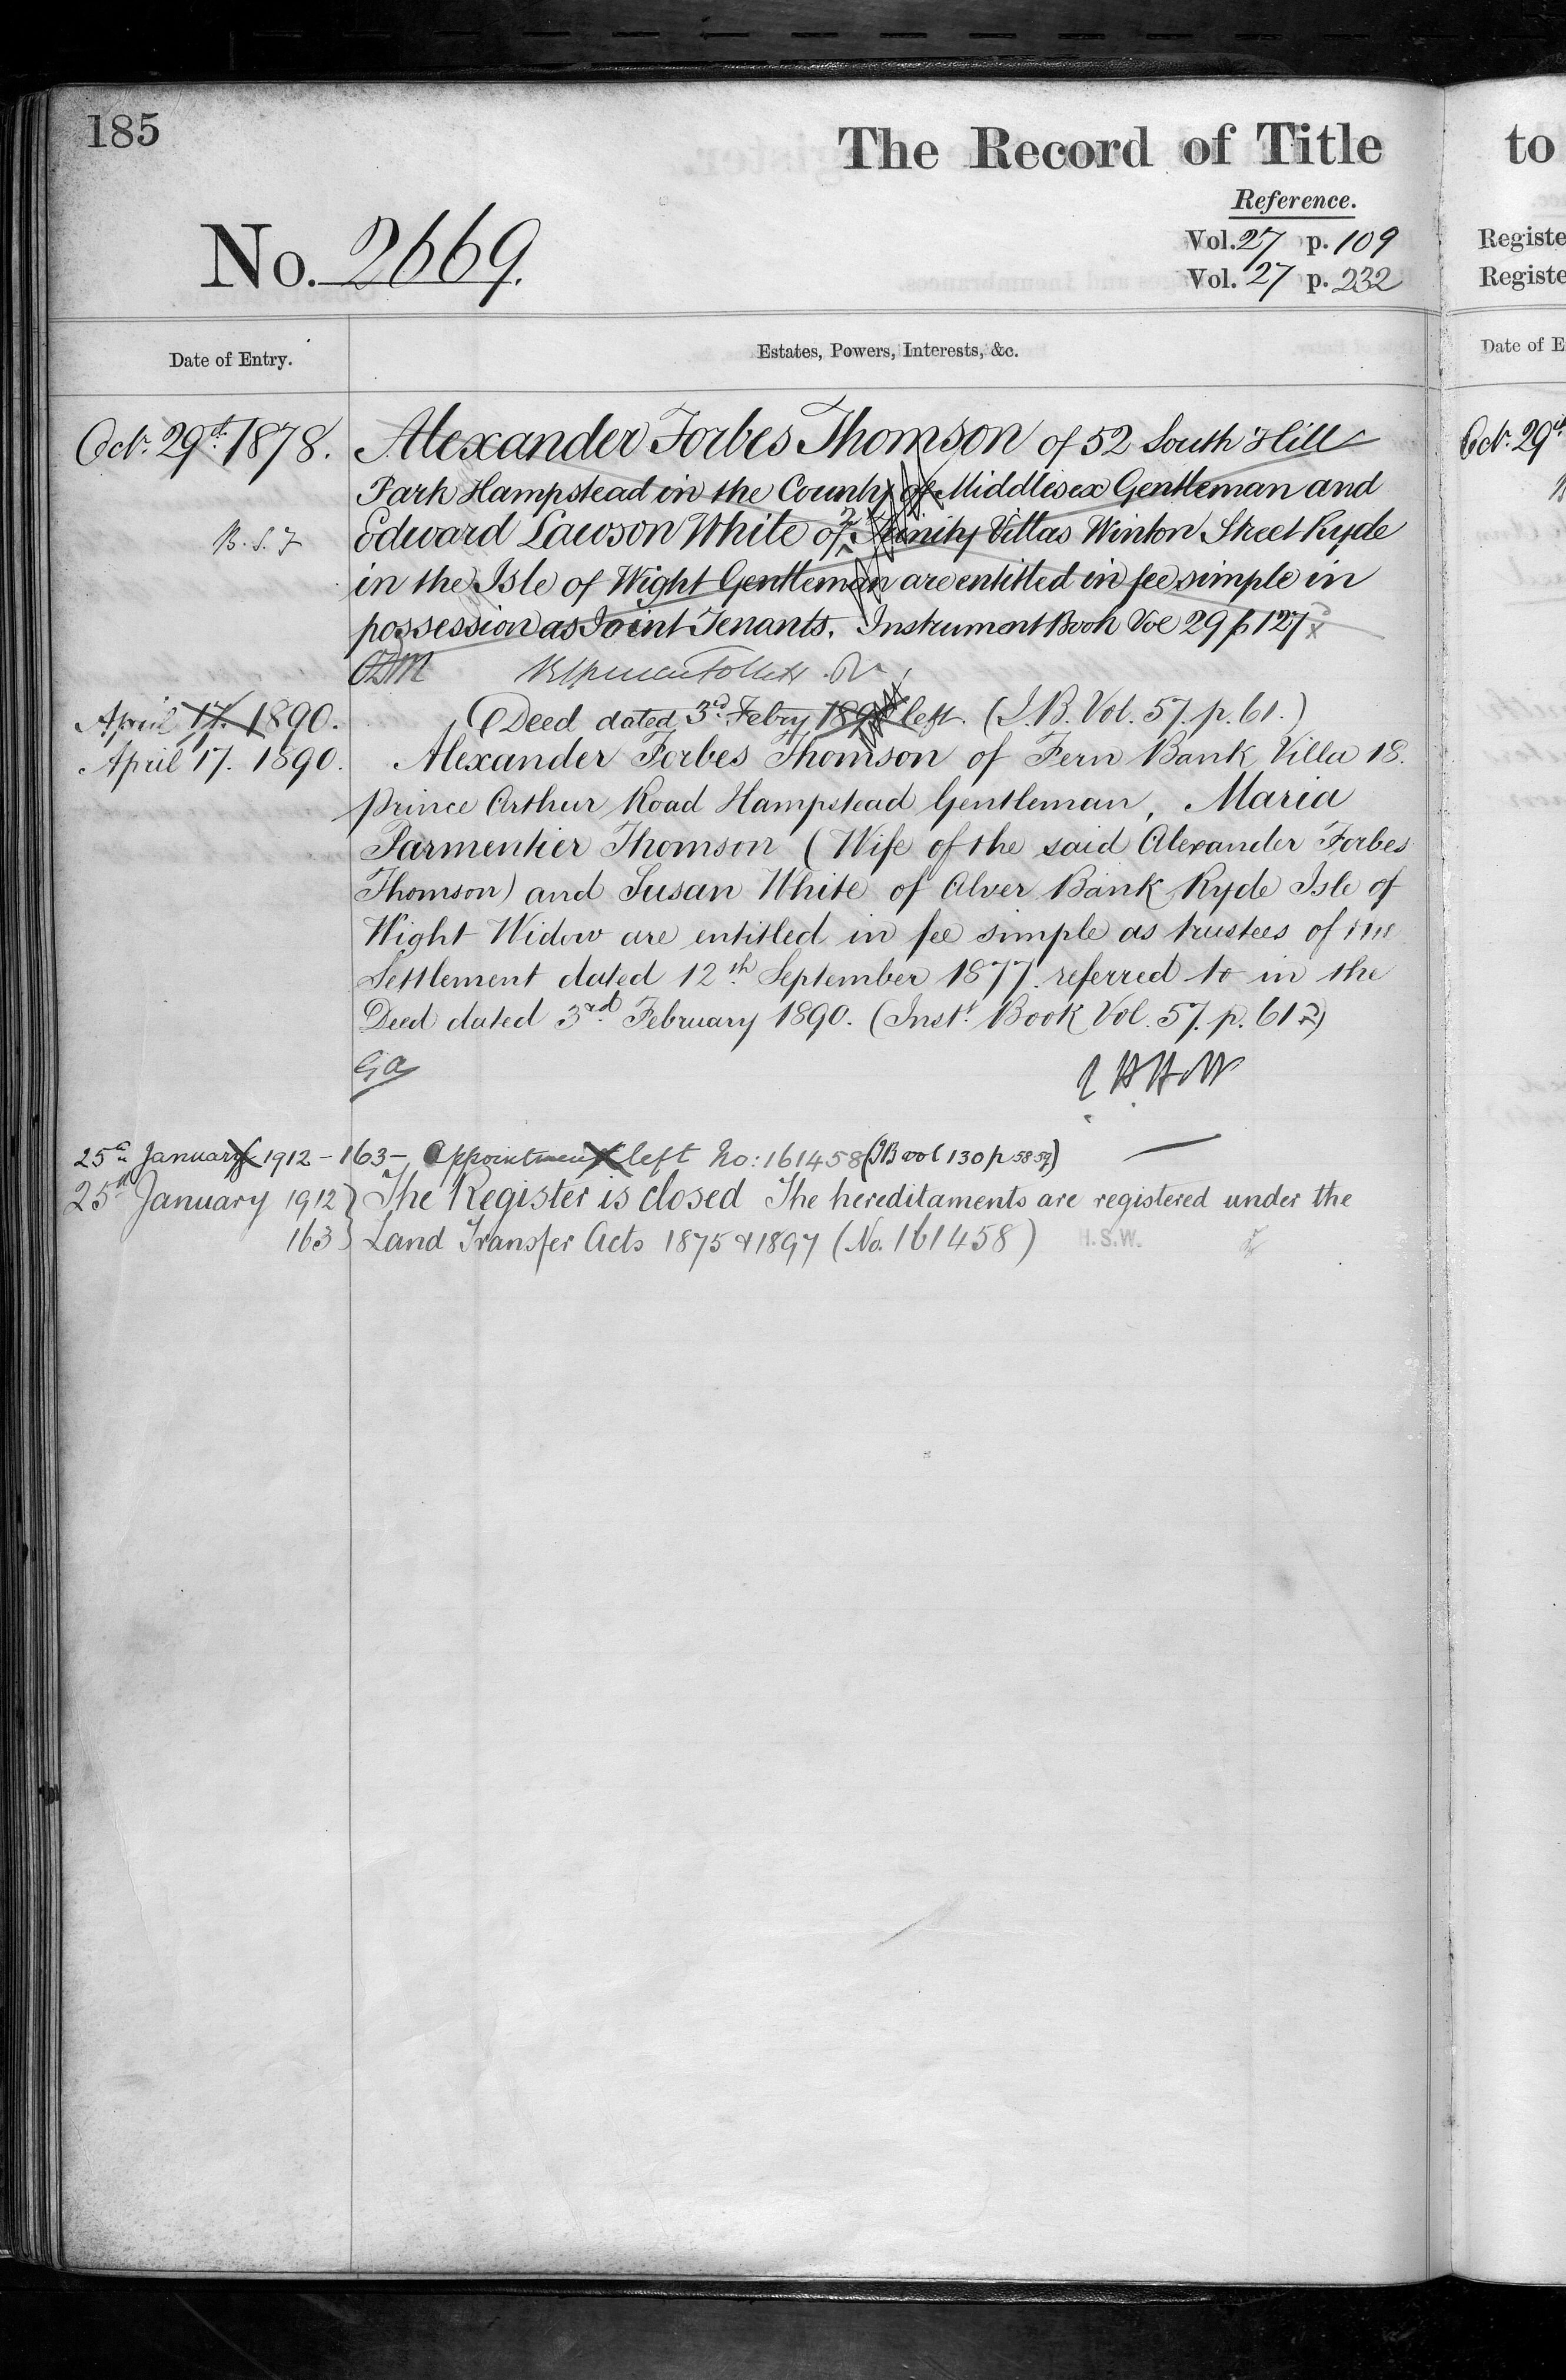 185
The Record of Title
to
Reference.
No. 2669.
Vol. 27 p. 109
Registe
Vol. 27 p. 232
Registe
Date of Entry.
Estates, Powers, Interests, &c.
Date of E
Octr. 29th 1878.
Alexander Forbes Thomson of 52 South Hill
Octr. 29th
Park Hampstead in the County of Middlesex Gentleman and
B. S. F
Edward Lawson White of 2 Trinity Villas Winton Street Ryde
in the Isle of Wight Gentleman are entitled in fee simple in
possession as Joint Tenants. Instrument Book Vol 29 p 127
April 17. 1890.
(Deed dated 3rd Febry 1890 left. (I.B. Vol. 57. p. 61.)
April 17. 1890.
Alexander Forbes Thomson of Fern Bank Villa 18.
Prince Arthur Road Hampstead Gentleman, Maria
Parmentier Thomson (Wife of the said Alexander Forbes
Thomson) and Susan White of Alver Bank Ryde Isle of
Wight Widow are entitled in fee simple as trustees of the
Settlement dated 12th September 1877 referred to in the
Deed dated 3rd February 1890. (Inst. Book Vol. 57. p. 61)
GA
25th January 1912 - 163 - Appointment left No: 161458 (IB vol 130 p 58 59)
25th January 1912 } The Register is closed The hereditaments are registered under the
163 } Land Transfer Acts 1875 & 1897 (No. 161458) H.S.W.